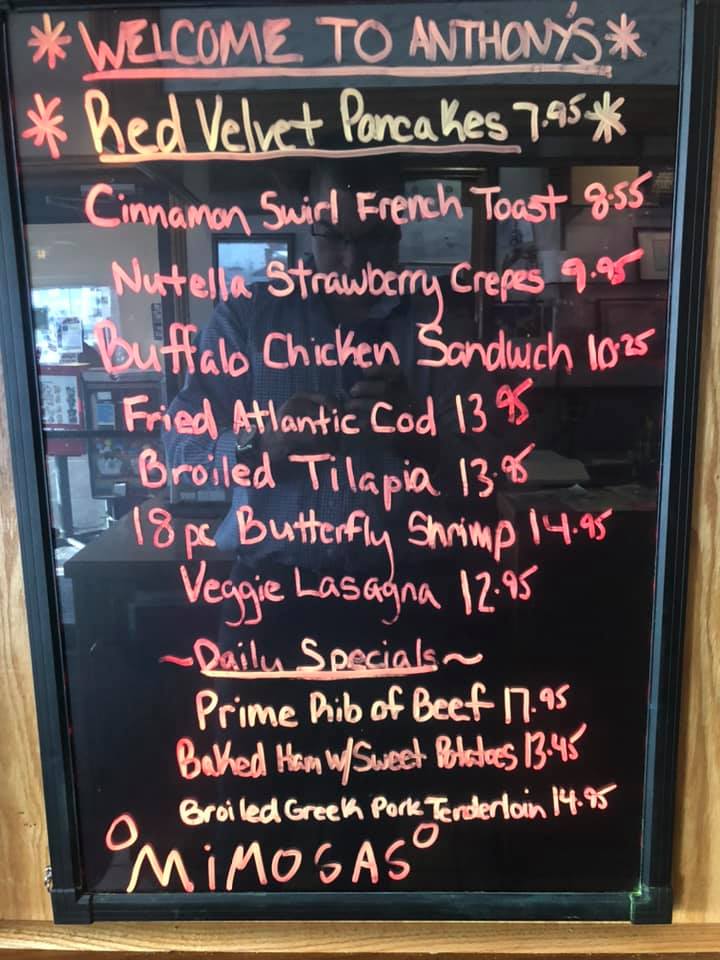 * WELCOME TO ANTHONY'S *
* Red Velvet Pancakes 7.95 *
Cinnamon Swirl French Toast 8.55
Nutella Strawberry Crepes 9.95
Buffalo Chicken Sandwich 10.25
Fried Atlantic Cod 13.95
Broiled Tilapia 13.95
18 pc Butterfly Shrimp 14.95
Veggie Lasagna 12.95
~Daily Specials~
Prime Rib of Beef 17.95
Baked Ham w/Sweet Potatoes 13.45
Broiled Greek Pork Tenderloin 14.95
MiMOSAS